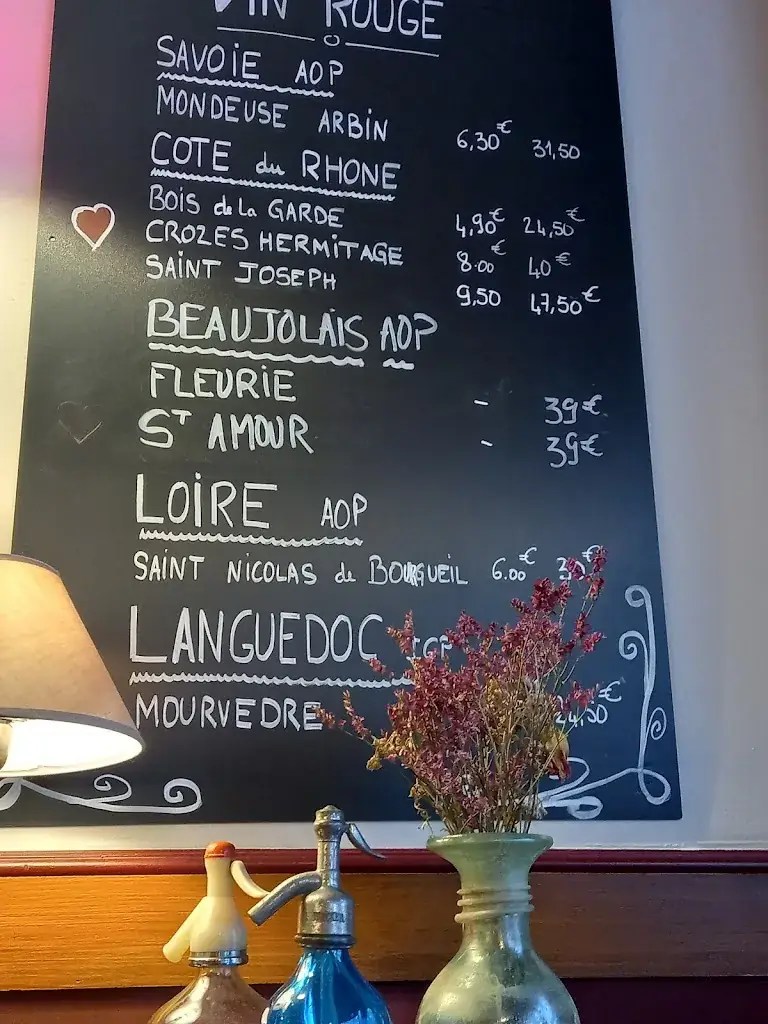 VIN ROUGE
SAVOIE AOP
MONDEUSE ARBIN 6,30€ 31,50
COTE du RHONE
BOIS de La GARDE 4,90€ 24,50€
CROZES HERMITAGE 8.00€ 40€
SAINT JOSEPH 9,50 47,50€
BEAUJOLAIS AOP
FLEURIE - 39€
ST AMOUR - 39€
LOIRE AOP
SAINT NICOLAS de BOURGUEIL 6.00€ 30€
LANGUEDOC IGP
MOURVEDRE 24,50€